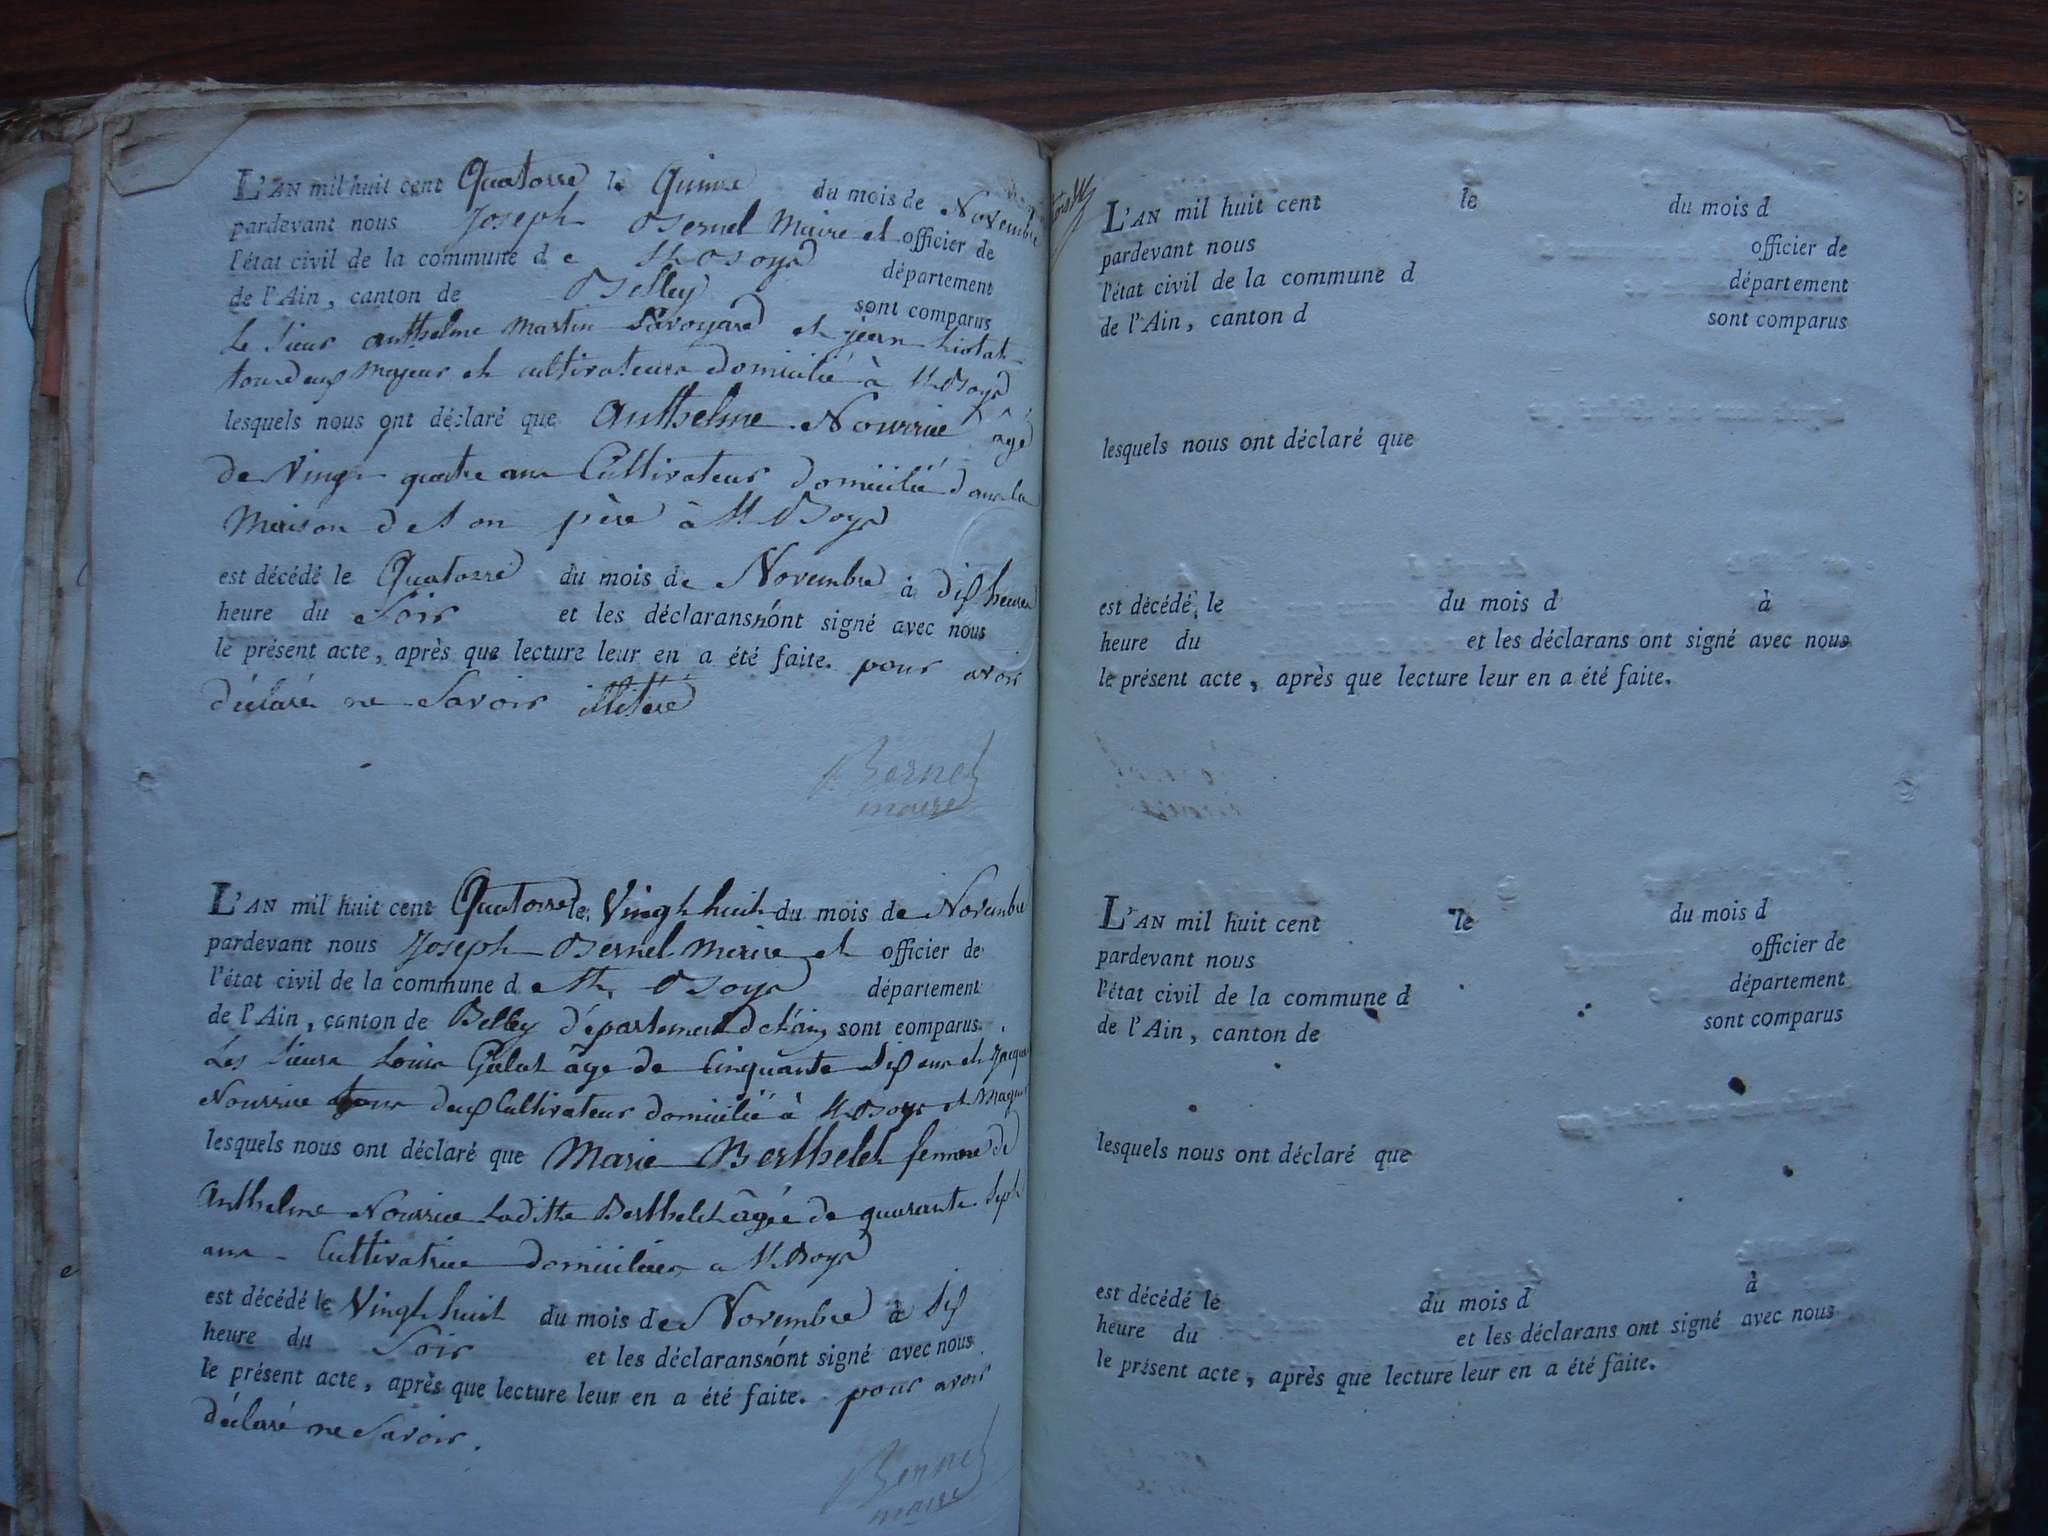 L'AN mil huit cent Quatorse le Quinse du mois de Novembre
pardevant nous Joseph Bernel Maire et officier de
l'état civil de la commune de St Boys département
de l'Ain, canton de Belley sont comparus
Le Sieur anthelme Martin Savoyard et jean
tous deux Majeur et cultivateurs domicilié à St Boys
lesquels nous ont déclaré que Anthelme Nourrice âgé
de Vingt quatre ans Cultivateur domicilié dans la
Maison de Son père à St Boys
est décédé le Quatorse du mois de Novembre à dix heures
heure du Soir et les déclarans n'ont signé avec nous
le présent acte, après que lecture leur en a été faite. pour avoir
déclaré ne Savoir
Bernel
maire
L'AN mil huit cent Quatorse le Vingt huit du mois de Novembre
pardevant nous Joseph Bernel Maire et officier de
l'état civil de la commune d St Boys département
de l'Ain, canton de Belley département de l'ain sont comparus
Les Sieurs Louis Galat âge de Cinquante Six ans et Jacque
Nourrice tous deux Cultivateur domicilié à St Boys et
lesquels nous ont déclaré que Marie Berthelet femme de
anthelme Nourrice Laditte Berthelet âgée de quarante Sept
ans Cultivatrice domiciliée a St Boys
est décédé le Vingt huit du mois de Novembre à Six
heure du Soir et les déclarans n'ont signé avec nous
le présent acte, après que lecture leur en a été faite. pour avoir
déclaré ne Savoir.
Bernel
maire
L'AN mil huit cent le du mois d
pardevant nous officier de
l'état civil de la commune d département
de l'Ain, canton d sont comparus
lesquels nous ont déclaré que
est décédé le du mois d à
heure du et les déclarans ont signé avec nous
le présent acte, après que lecture leur en a été faite.
L'AN mil huit cent le du mois d
pardevant nous officier de
l'état civil de la commune d département
de l'Ain, canton de sont comparus
lesquels nous ont déclaré que
est décédé le du mois d à
heure du et les déclarans ont signé avec nous
le présent acte, après que lecture leur en a été faite.